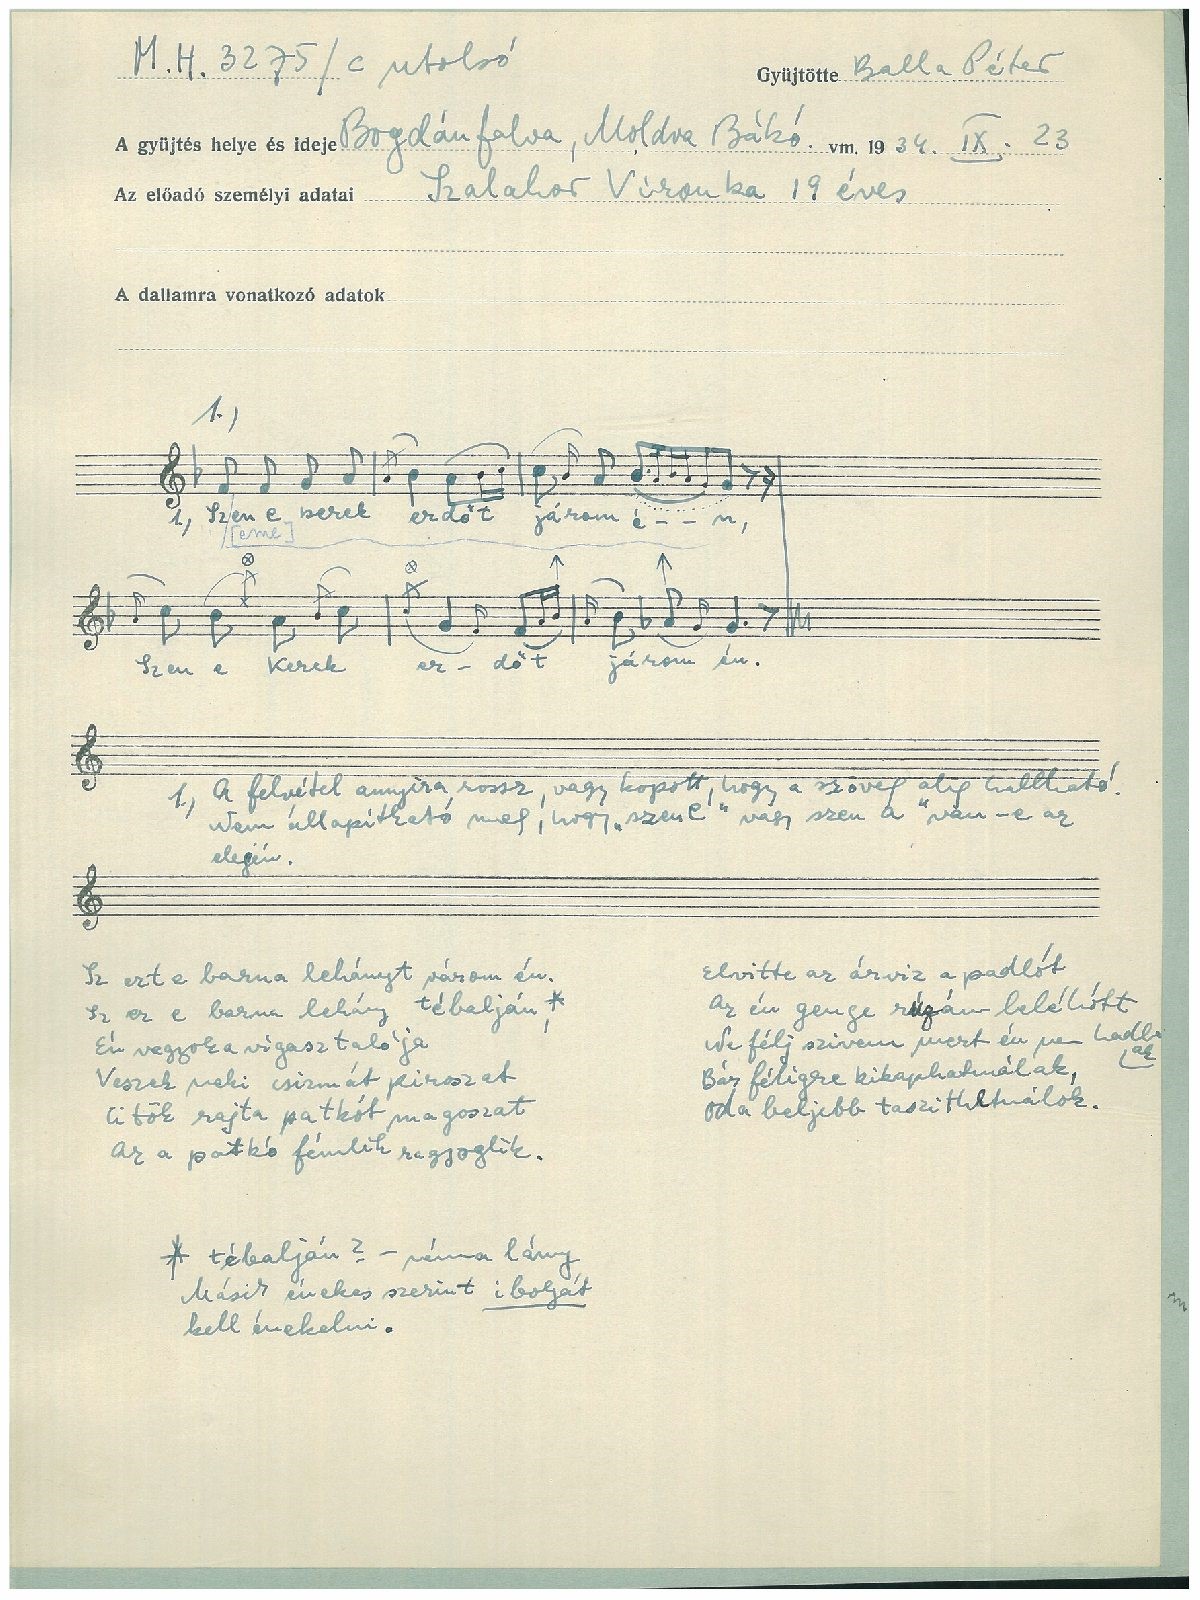 M.H. 3275/c utolsó
Gyüjtötte Balla Péter
A gyüjtés helye és ideje Bogdánfalva, Moldva Bákó. vm. 1934. IX. 23
Az előadó személyi adatai Szalahor Vironka 19 éves
A dallamra vonatkozó adatok
1.)
1, Szen e kerek erdőt járom é - - n,
[eme]
Szen e kerek er - dőt járom én.
1, A felvétel annyira rossz, vagy kopott, hogy a szöveg alig hallható.
Nem állapítható meg, hogy „szen e" vagy szen a" van-e az
elején.
Sz ezt e barna lehányt várom én.
Sz ez e barna lehány tébalján *
Én vagyok a vigasztalója
Veszek neki csizmát piroszat
Ütök rajta patkót magoszat
Az a patkó fémlik ragyoglik.
Elvitte az árviz a padlót
Az én genge rózám beléhótt
Ne félj szivem mert én nem hadlak
Bár féligre kikaphatnálak,
Oda beljebb taszithatnálok.
* tébalján? - néma lány
Másik énekes szerint ibolyát
kell énekelni.